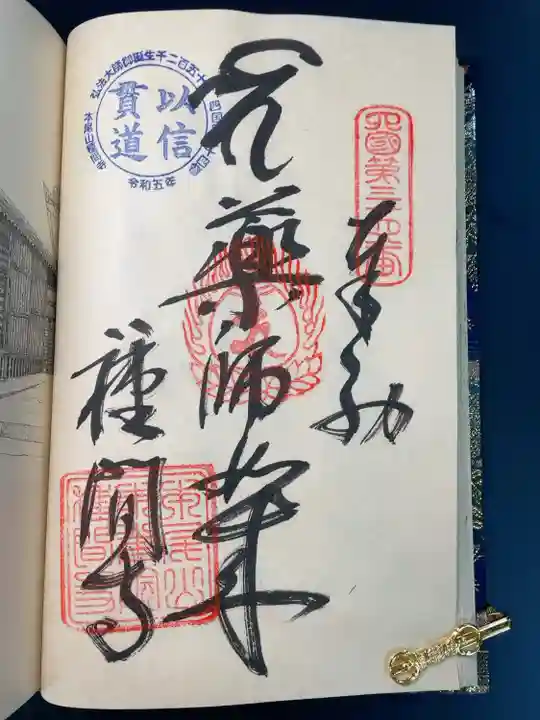 四國第三四番
奉納
薬師如来
種間寺
弘法大師御誕生千二百五十
以信
貫道
本尾山種間寺
令和五年